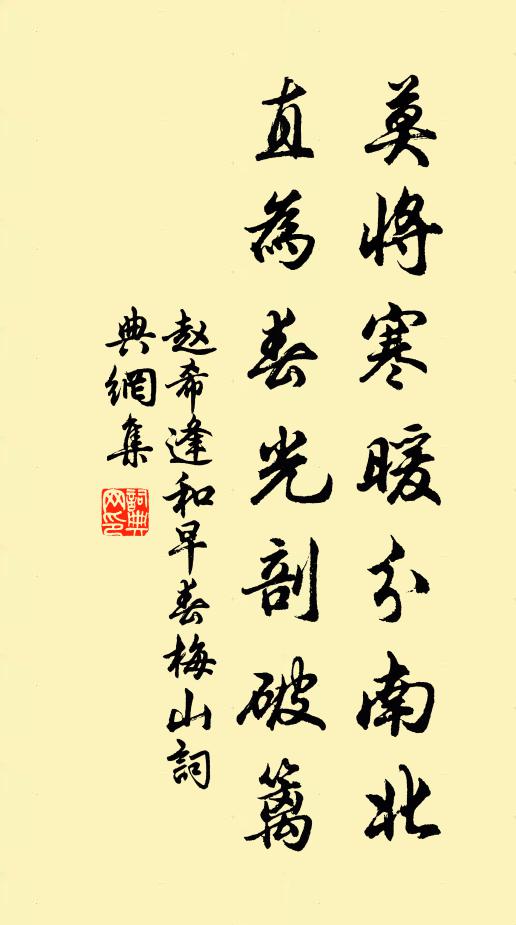 莫將寒暖分南北
直為春光剖破籬
赵希逢和早春梅山詞
典網集
詞典
网印